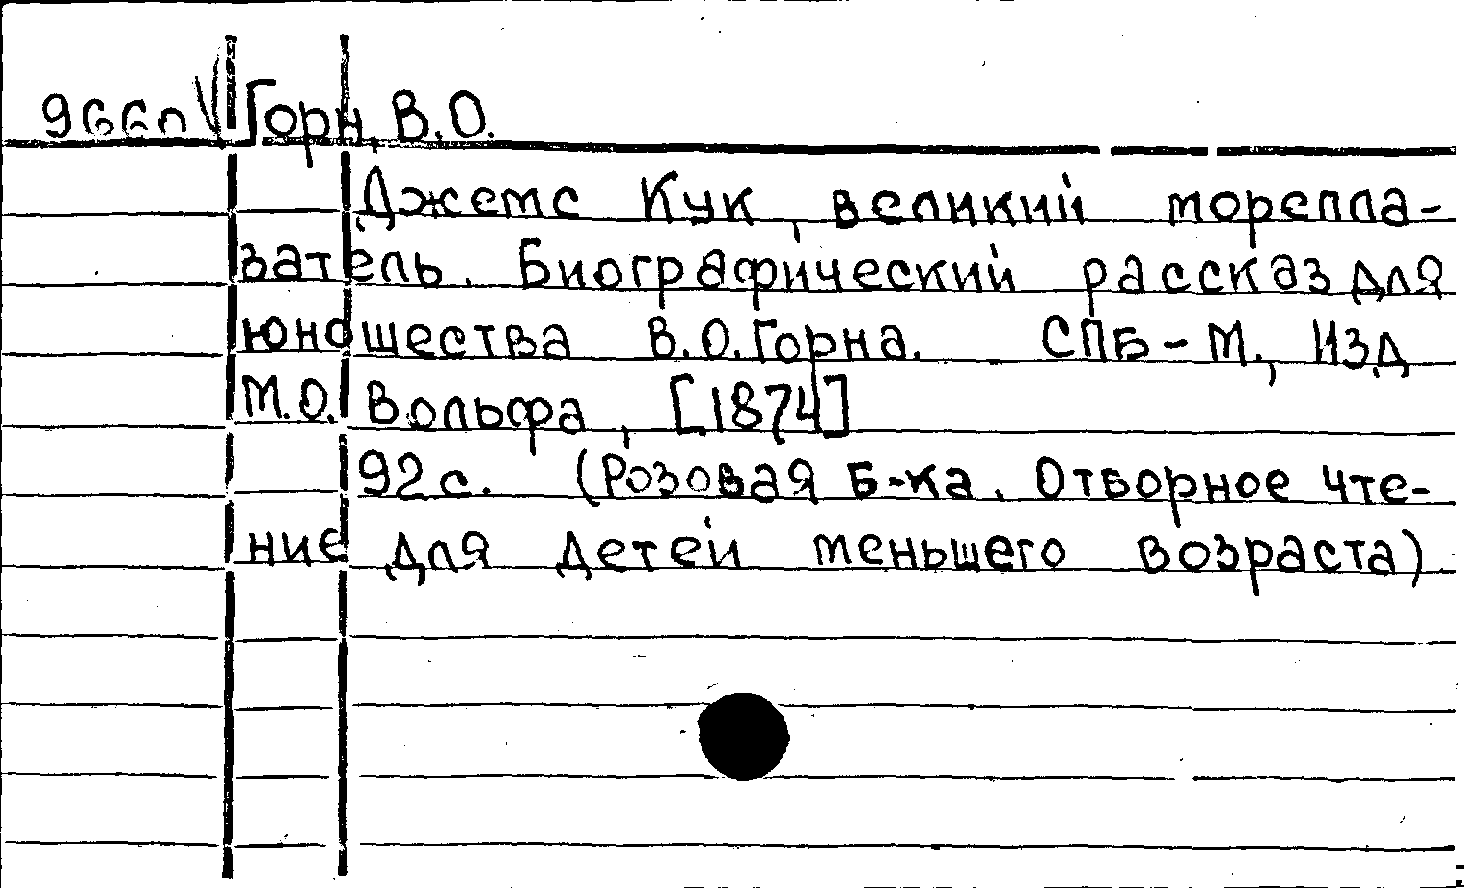 966л Горн, В.О.
Джемс Кук, великий морепла-
ватель. Биографический рассказ для
юношества В.О.Горна. СПБ-М., Изд
М.О. Вольфа, [1874]
92с. (Розовая Б-ка. Отборное чте-
ние для детей меньшего возраста)